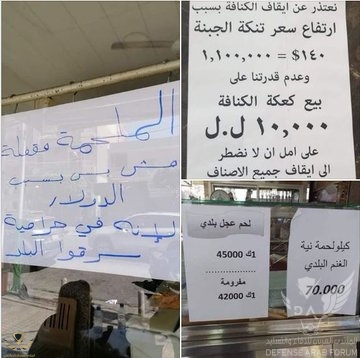 الملحمة مقفلة
مش بس بسبب
الدولار
لإنه في حرامية
سرقوا البلد
نعتذر عن ايقاف الكنافة بسبب
ارتفاع سعر تنكة الجبنة
١٤٠$ = ١,١٠٠,٠٠٠
وعدم قدرتنا على
بيع كعكة الكنافة
١٠,٠٠٠ ل.ل
على امل ان لا نضطر
الى ايقاف جميع الاصناف
لحم عجل بلدي
1ك 45000
مفرومة
1ك 42000
كيلو لحمة نية
الغنم البلدي
70.000
DEFENSE ARAB FORUM